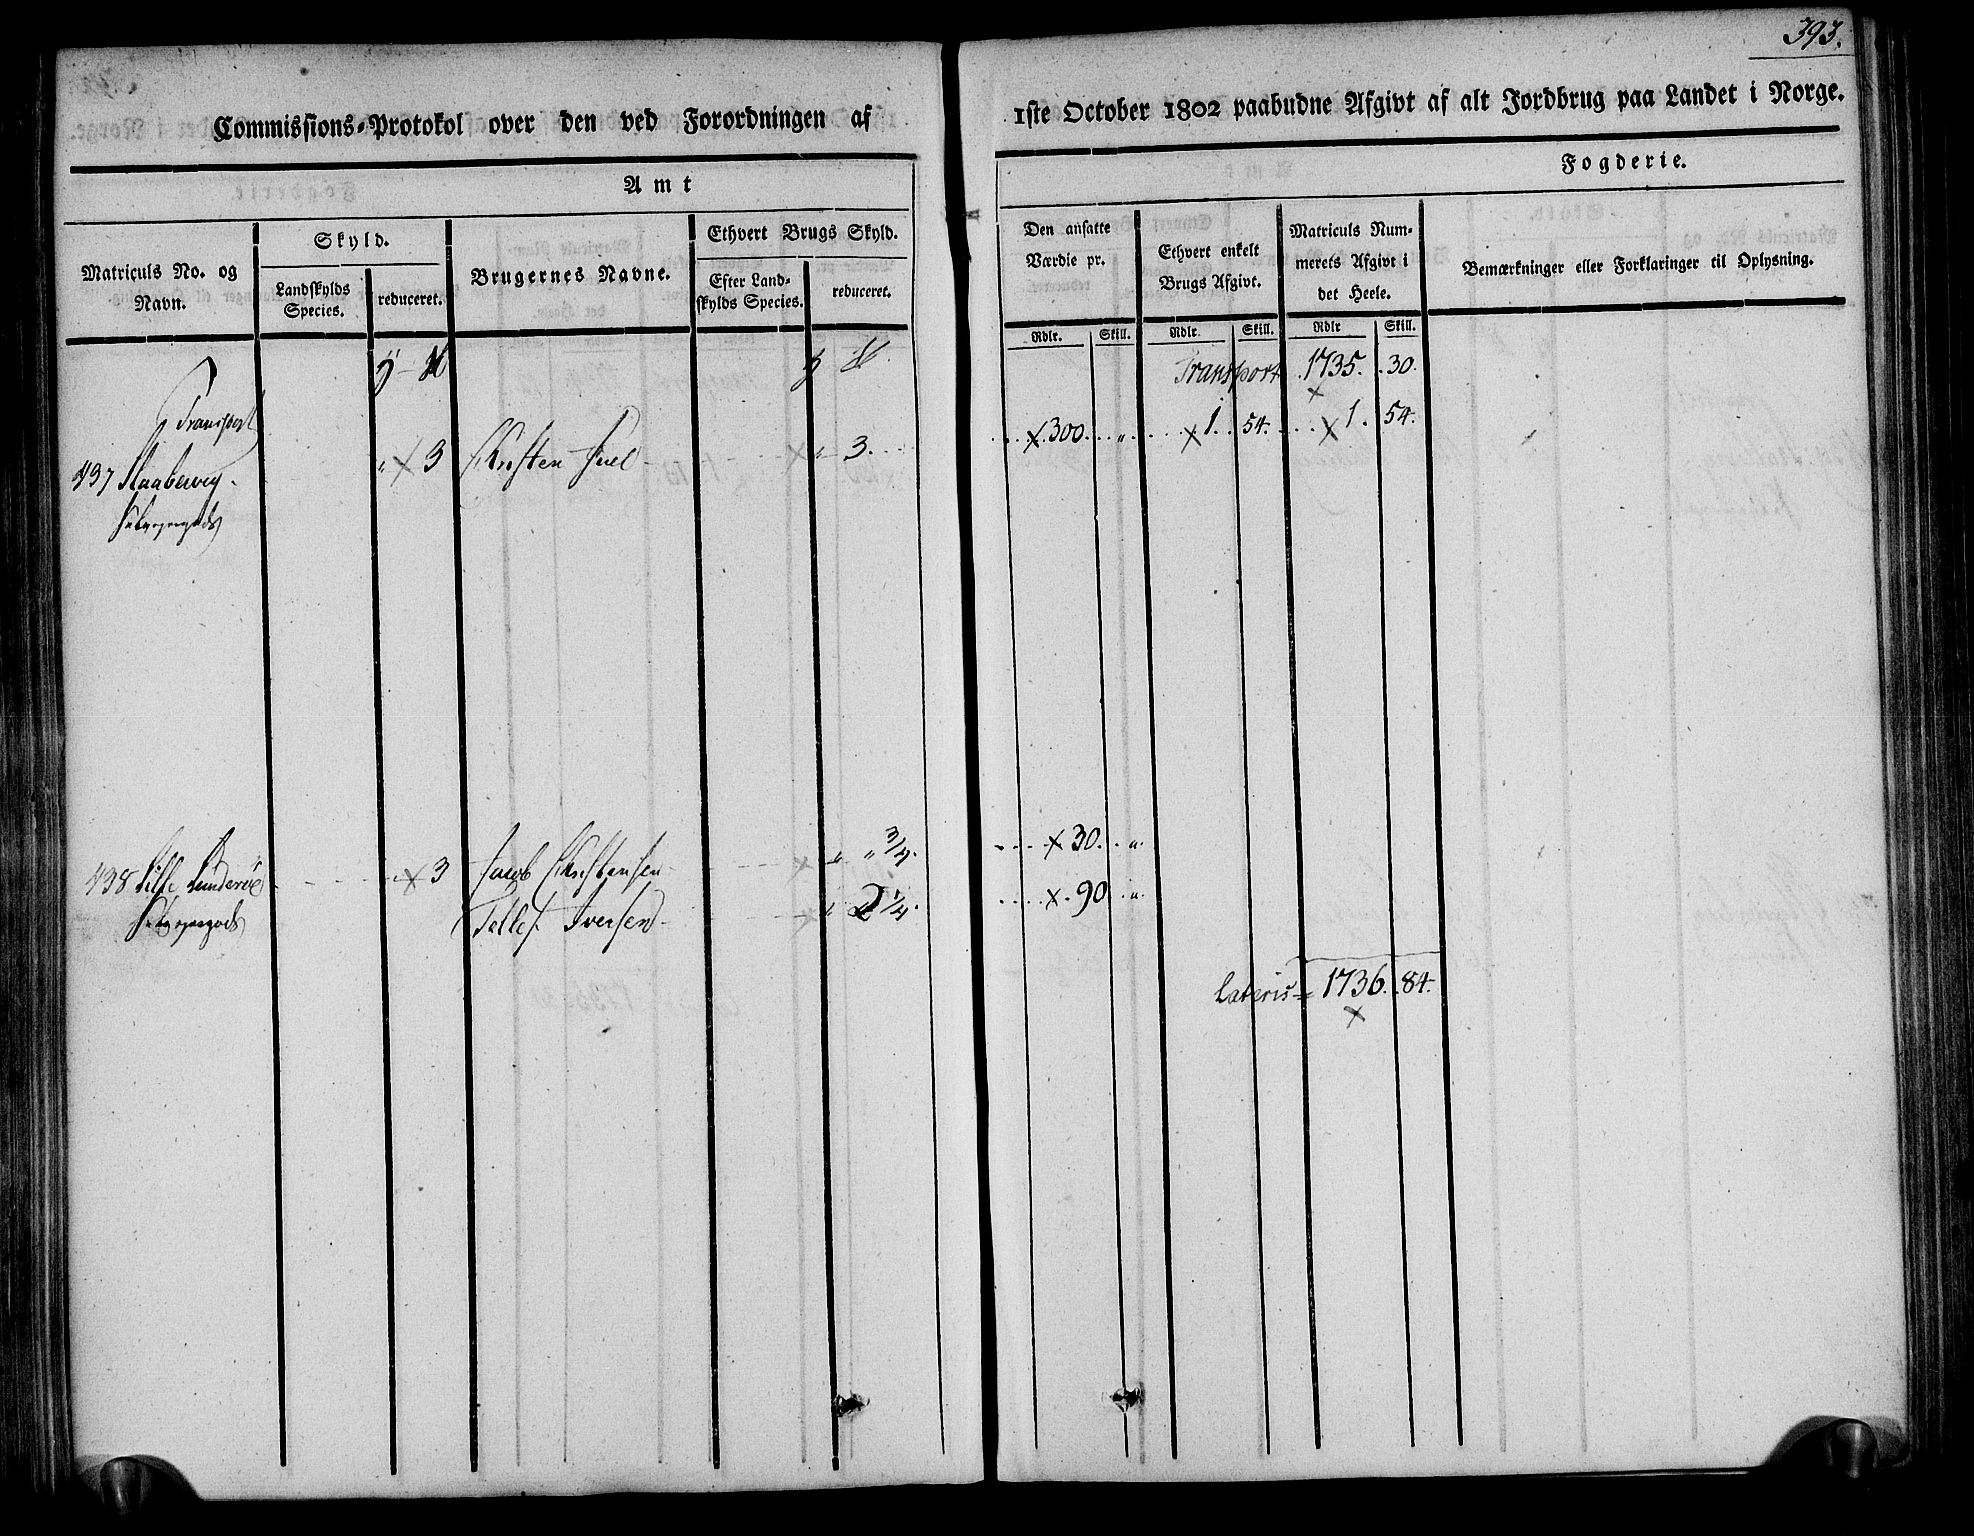 393.
Commissions-Protokol over den ved Forordningen af 1ste October 1802 paabudne Afgivt af alt Jordbrug paa Landet i Norge.
Amt
Fogderie.
Matriculs No. og Navn.
Skyld.
Landskylds Species.
reduceret.
Brugernes Navne.
Ethvert Brugs Skyld.
Efter Landskylds Species.
reduceret.
Den ansatte Værdie pr.
Rdlr. Skill.
Ethvert enkelt Brugs Afgivt.
Rdlr. Skill.
Matriculs Nummerets Afgivt i det Heele.
Rdlr Skill.
Bemærkninger eller Forklaringer til Oplysning.
Transport
Transport 1735. 30.
437 " 3 Christen Juel " 3. 300. " 1. 54. 1. 54.
438 Lille 3 Jacob Christensen " " 3/4. 30. "
Tellef Iversen " 2 1/4. 90. "
Lateris = 1736. 84.